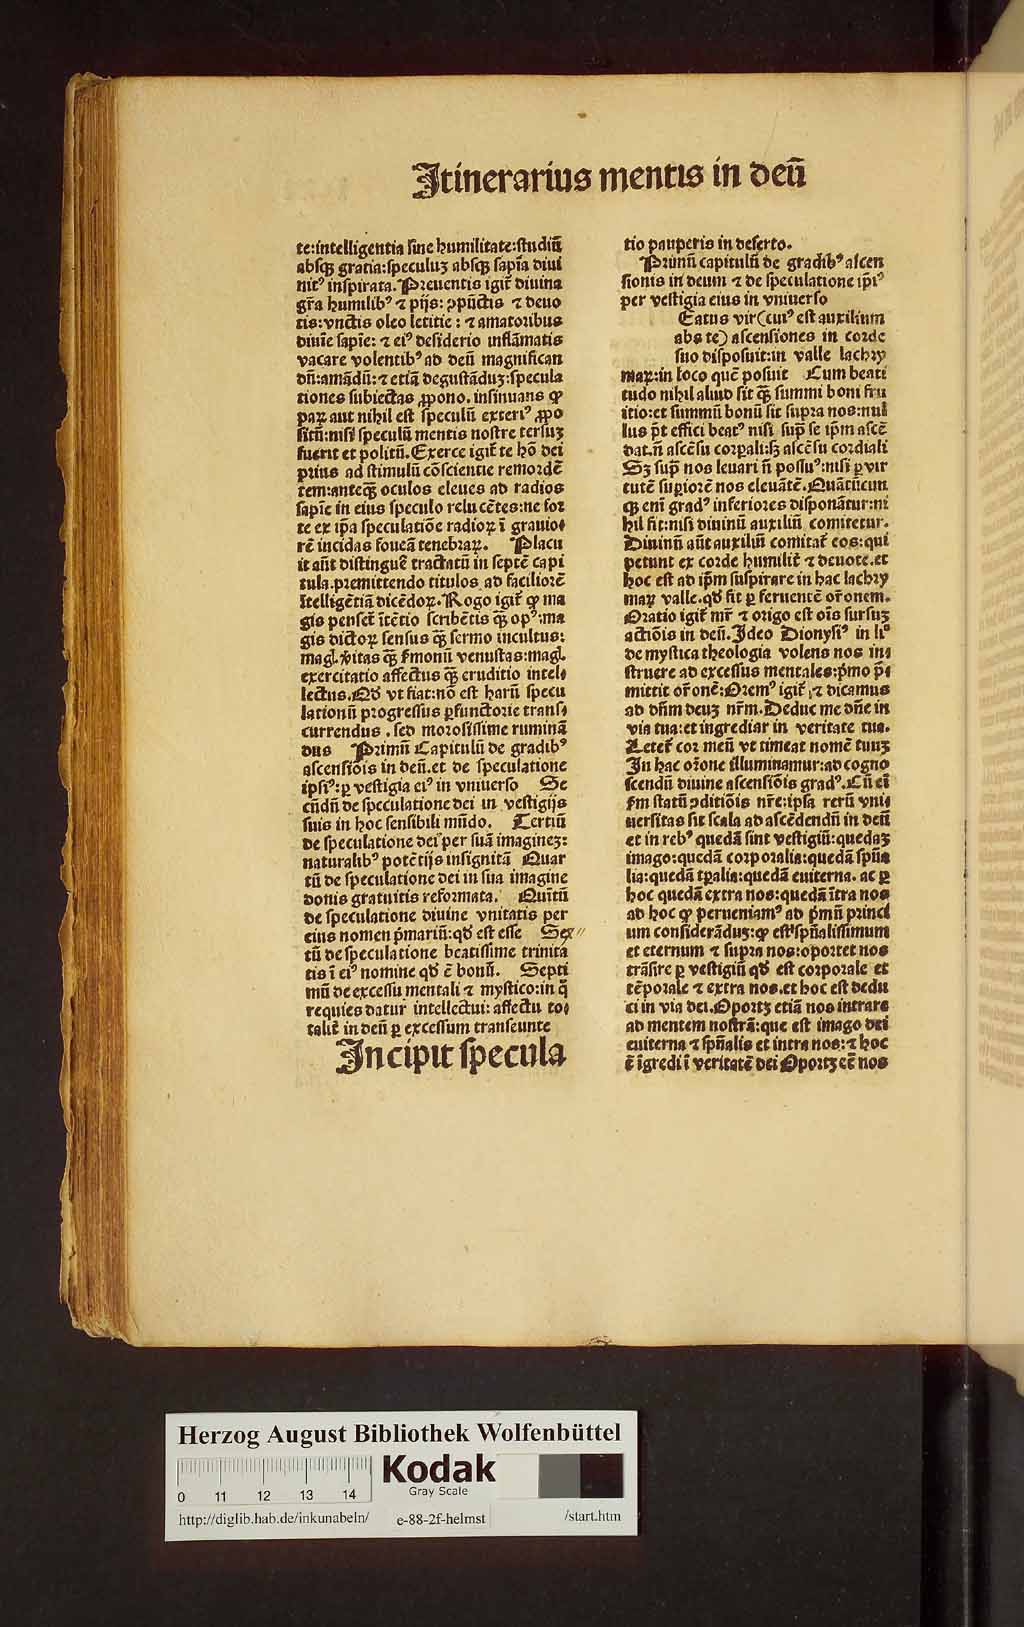 Itinerarius mentis in deū
te:intelligentia sine humilitate:studiū
absqꝫ gratia:speculuꝫ absqꝫ sapīa diui
nitꝰ inspirata. Preuentis igit̄ diuina
gr̄a humilibꝰ ⁊ pijs: ꝯpūctis ⁊ deuo
tis:vnctis oleo letitie: ⁊ amatoribus
diuīe sapīe: ⁊ eiꝰ desiderio inflāmatis
vacare volentibꝰ ad deū magnifican
dū:amādū:⁊ etiā degustāduꝫ:specula
tiones subiectas ꝓpono. insinuans ꝙ
paꝝ aut nihil est speculū exteriꝰ ꝓpo
sitū:nisi speculū mentis nostre tersuꝫ
fuerit et politū. Exerce igit̄ te hō dei
prius ad stimulū cōscientie remordē
tem:anteqꝫ̄ oculos eleues ad radios
sapīe in eius speculo relucētes:ne for
te ex ip̄a speculatiōe radioꝝ ī grauio⸗
rē incidas foueā tenebraꝝ. Placu
it aūt distinguē tractatū in septē capi
tula.premittendo titulos ad faciliorē
ītelligētiā dicēdoꝝ. Rogo igit̄ ꝙ ma
gis penset̄ ītētio scribētis qꝫ̄ opꝰ:ma
gis dictoꝝ sensus qꝫ̄ sermo incultus:
magl̄ v̄itas qꝫ̄ f̄monū venustas:magl̄
exercitatio affectus qꝫ̄ eruditio intel⸗
lectus. Qd̄ vt fiat:nō est harū specu
lationū progressus ꝑfunctorie transi
currendus. sed morosissime ruminā
dus Primū Capitulū de gradibꝰ
ascensiōis in deū.et de speculatione
ipsiꝰ:ꝑ vestigia eiꝰ in vniuerso Se
cūdū de speculatione dei in vestigijs
suis in hoc sensibili mūdo. Tertiū
de speculatione dei per suā imagineꝫ:
naturalibꝰ potētijs insignitā Quar
tū de speculatione dei in sua imagine
donis gratuitis reformata. Quītū
de speculatione diuine vnitatis per
eius nomen p̄mariū:qd̄ est esse Sex
tū de speculatione beatissime trinita
tis ī eiꝰ nomine qd̄ ē bonū. Septi
mū de excessu mentali ⁊ mystico:in q̄
requies datur intellectui: affectu to⸗
talit̄ in deū ꝑ excessum transeunte
Incipit specula
tio pauperis in deserto.
Primū capitulū de gradibꝰ ascen
sionis in deum ⁊ de speculatione ip̄iꝰ
per vestigia eius in vniuerso
Eatus vir(cuiꝰ est auxilium
abs te) ascensiones in corde
suo disposuit:in valle lachry
maꝝ:in loco quē posuit Cum beati
tudo nihil aliud sit qꝫ̄ summi boni fru
itio:et summū bonū sit supra nos:nul
lus p̄t effici beatꝰ nisi sup̄ se ip̄m ascē
dat.n̄ ascēsu corꝑali:sꝫ ascēsu cordiali
Sꝫ sup̄ nos leuari n̄ possuꝰ:nisi ꝑ vir
tutē suꝑiorē nos eleuātē. Quātūcun
qꝫ eni grad9 inferiores disponātur:ni
hil fit:nisi diuinū auxiliū comitetur.
Diuinū aūt auxiliū comitat̄ eos:qui
petunt ex corde humilit̄ ⁊ deuote.et
hoc est ad ip̄m suspirare in hac lachry
maꝝ valle.qd̄ fit ꝑ feruentē or̄onem.
Oratio igit̄ mr̄ ⁊ origo est oīs sursuꝫ
actiōis in deū. Ideo Dionysiꝰ in liº
de mystica theologia volens nos in⸗
struere ad excessus mentales:p̄mo p̄⸗
mittit or̄onē:Oremꝰ igit̄ ,⁊ dicamus
ad dn̄m deuꝫ nr̄m. Deduc me dn̄e in
via tua:et ingrediar in veritate tua.
Letet̄ cor meū vt timeat nomē tuuꝫ
In hac or̄one illuminamur:ad cogno
scendū diuine ascensiōis gradꝰ. Cū eī
f̄m statū ꝯditiōis nr̄e:ipsa rerū vni⸗
uersitas sit scala ad ascēdendū in deū
et in rebꝰ quedā sint vestigiū:quedaꝫ
imago:quedā corporalia:quedā spūa
lia:quedā tꝑalia:quedā euiterna. ac ꝑ
hoc quedā extra nos:quedā ītra nos
ad hoc ꝙ perueniamꝰ ad p̄mū princi
um considerāduꝫ:ꝙ est spūalissimum
et eternum ⁊ supra nos:oportet nos
trāsire ꝑ vestigiū qd̄ est corporale et
tēporale ⁊ extra nos.et hoc est dedu
ci in via dei. Oportꝫ etiā nos intrare
ad mentem nostrā:que est imago dei
euiterna ⁊ spūalis et intra nos:⁊ hoc
ē īgredi ī veritatē dei Oportꝫ eē nos
Herzog August Bibliothek Wolfenbüttel
0 11 12 13 14
Kodak
Gray Scale
http://diglib.hab.de/inkunabeln/ e-88-2f-helmst /start.htm